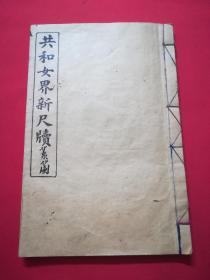 共和女界新尺牘